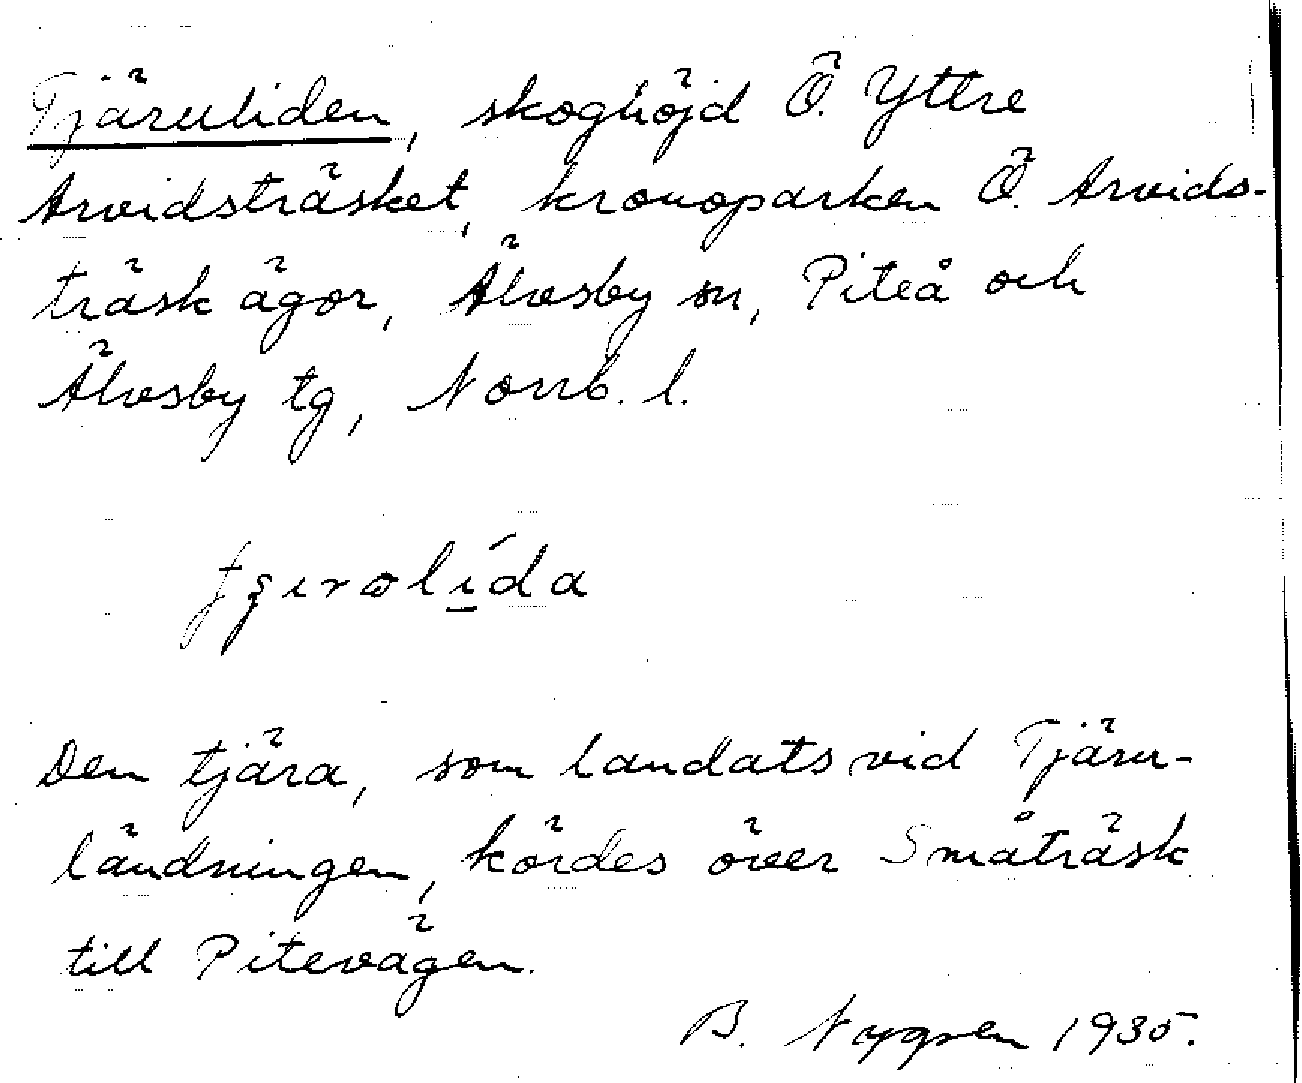 Tjäruliden, skoghöjd Ö. Yttre
Arvidsträsket, kronoparken Ö. Arvids-
träsk ägor, Älvsby sn, Piteå och
Älvsby tg, Norrb. l.
Den tjära, som landats vid Tjäru-
ländningen, kördes över Småträsk
till Pitevägen.
B. Nygren 1935.